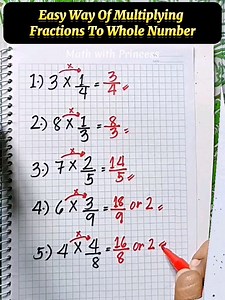 Easy Way Of Multiplying
Fractions To Whole Number
Math with Princess
x
1.) 3 x 1/4 = 3/4
x
2.) 8 x 1/3 = 8/3
x
3.) 7 x 2/5 = 14/5
x
4.) 6 x 3/9 = 18/9 or 2
x
5.) 4 x 4/8 = 16/8 or 2